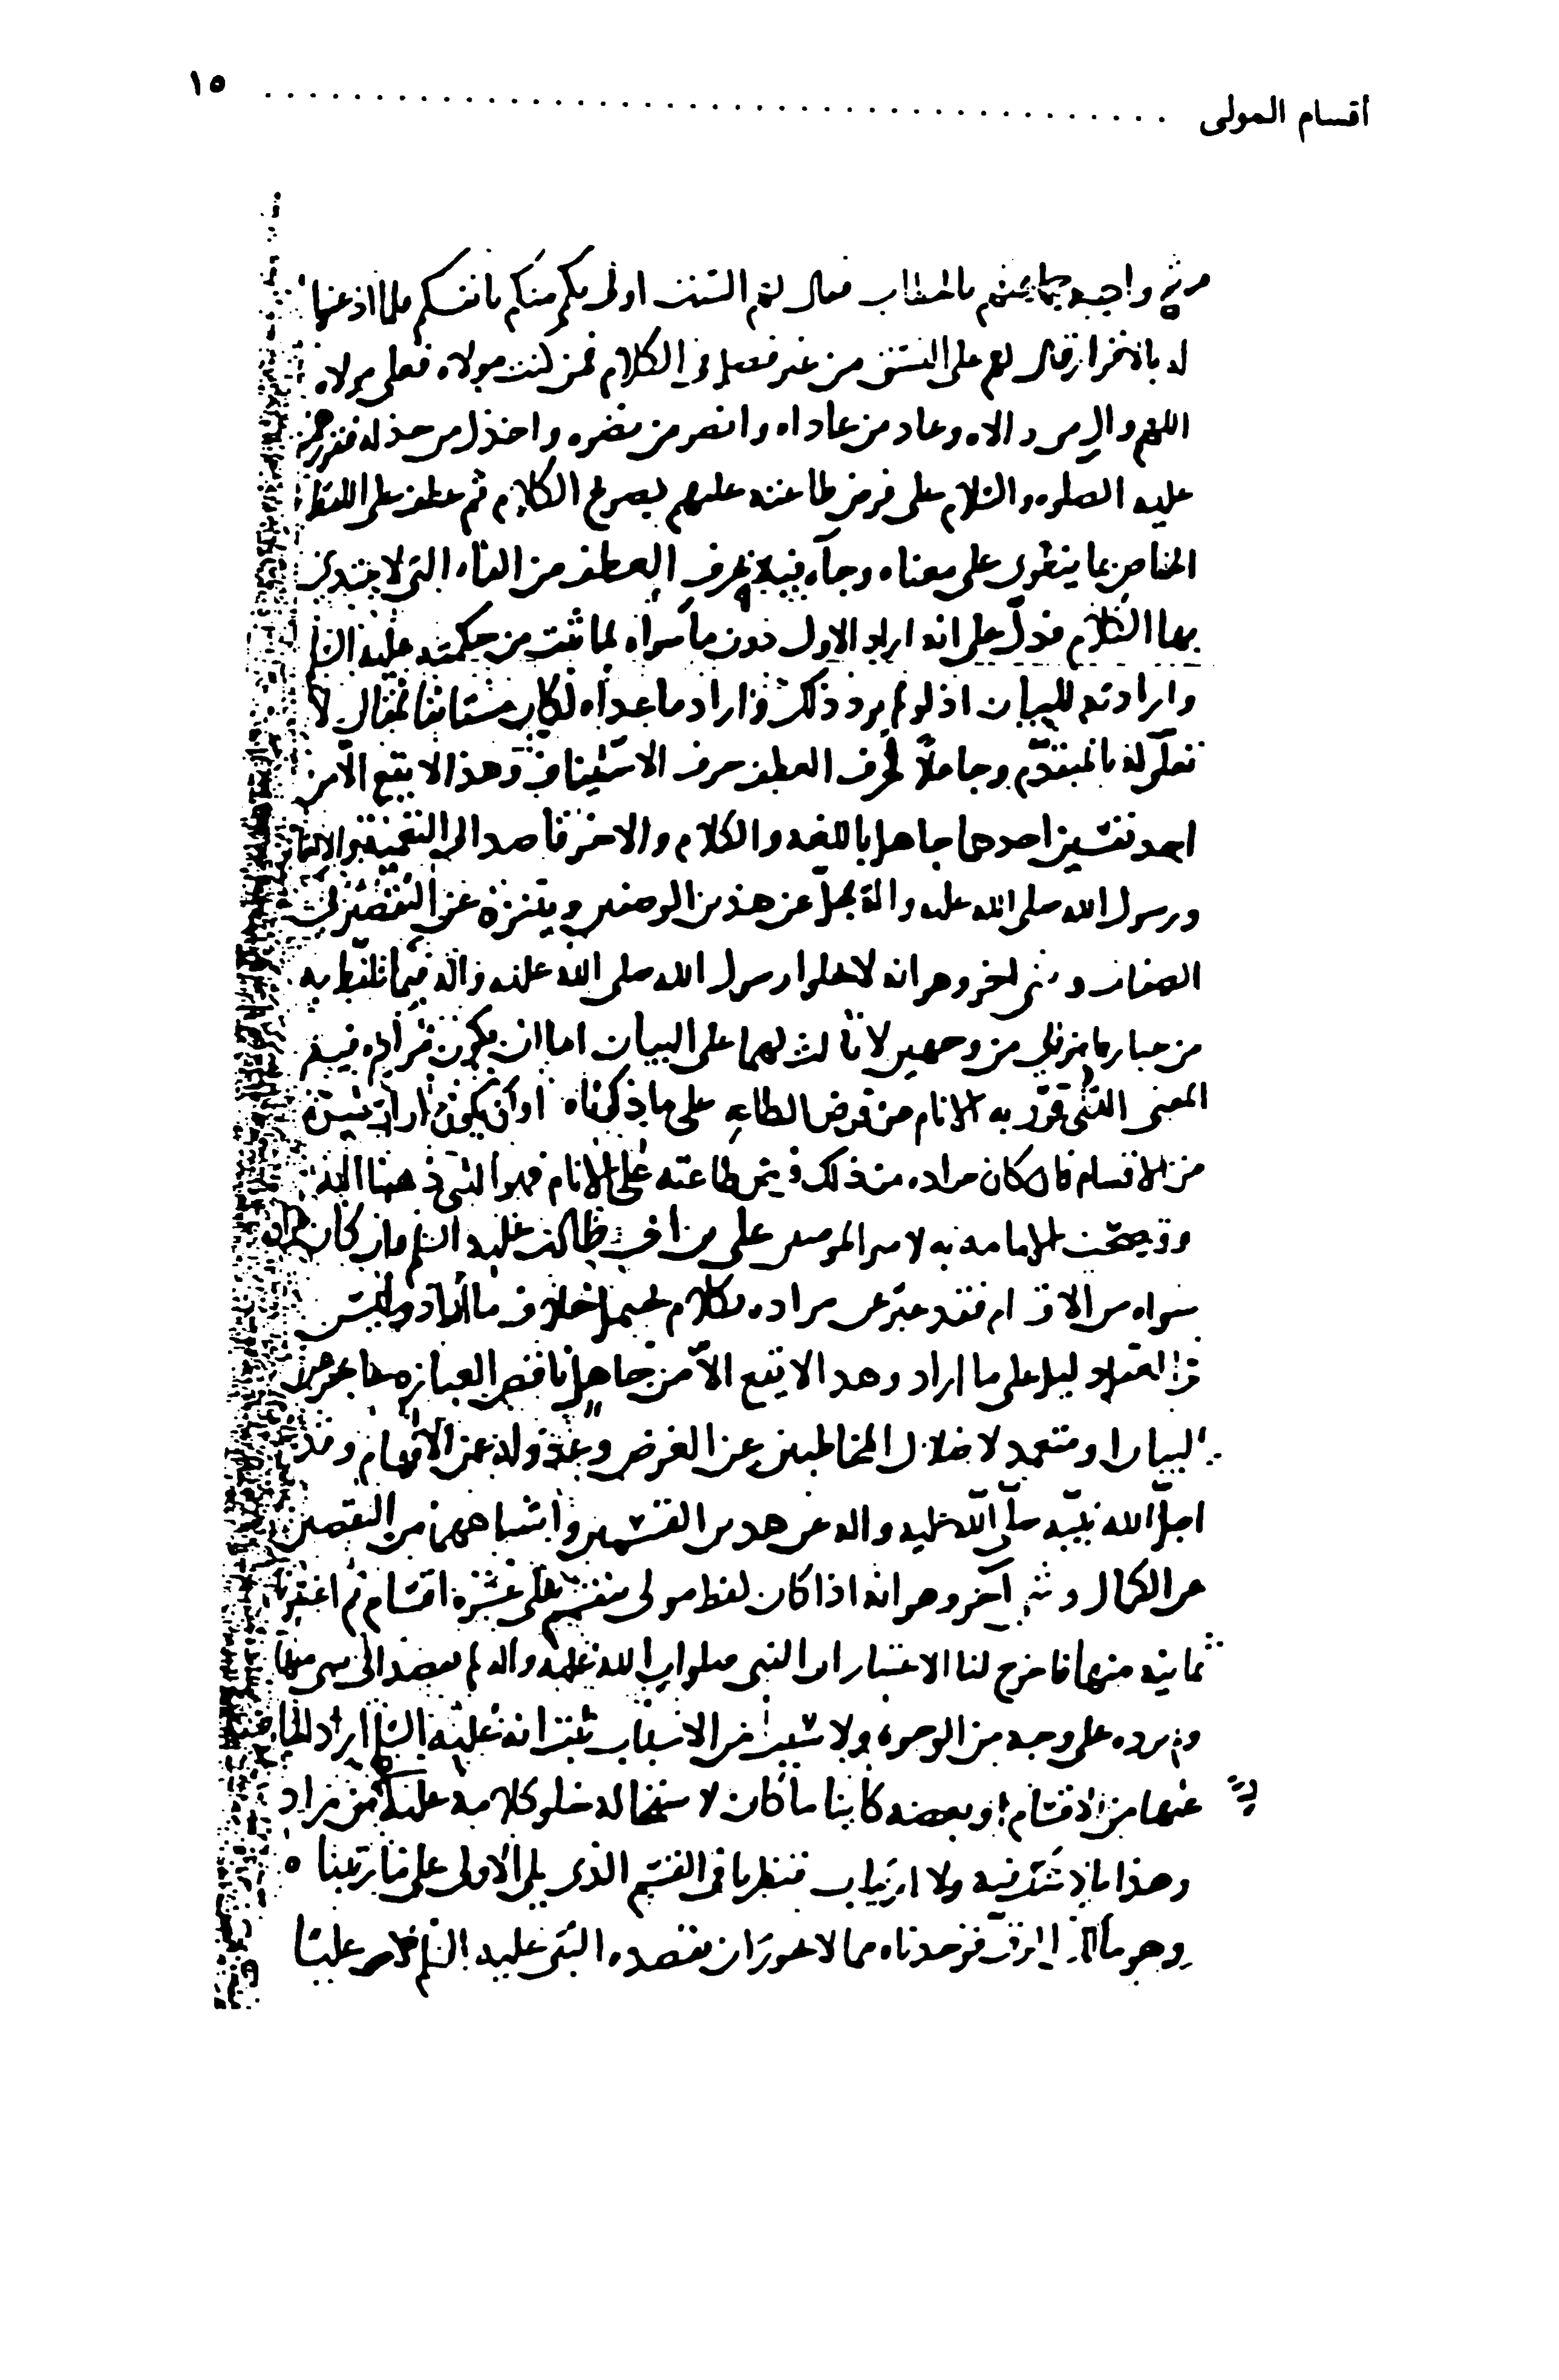 أقسام المولى ........................................ ١٥
واجه جماعتهم بالخطاب فقال لهم الست اولى بكم منكم بانفسكم فلما اذعنوا
له بالاقرار قال لهم على النسق من غير فصل في الكلام فمن كنت مولاه فعلي مولاه
اللهم وال من والاه وعاد من عاداه وانصر من نصره واخذل من خذله فقرر
عليه الصلوه والسلام على فرض طاعته عليهم بصريح الكلام ثم عطف على اللفظ
الخاص بما ينطوي على معناه وجاء فيه بحرف العطف من الفاء التي لا يبتدئ
بها الكلام فدل على انه اراد الاول دون ما سواه لما ثبت من حكمته عليه السلم
وارادته للبيان اذ لو لم يرد ذلك واراد ما عداه لكان مستانفا لمقال لا
تعلق له بالمتقدم وجاعلا لحرف العطف حرف الاستيناف وهذا لا يقع الا من
احد نفسين احدهما جاهل باللغه والكلام والاخر قاصد الى التعميه والالغاز
ورسول الله صلى الله عليه واله يجل عن هذين الوصفين ويتنزه عن النقص في
الصفات وشي اخر وهو انه لا يخلوا رسول الله صلى الله عليه واله فيما تلفظ به
من عبارة من وجهين لا ثالث لهما على البيان اما ان يكون مراده فيه
المعنى الذي قرر به الانام من فرض الطاعه على ما ذكرناه او ان يكون اراد غيره
من الاقسام فان كان مراده من ذلك فرض طاعته على الانام فهو الذي ذهبنا اليه
وصحت الامامه به لامير المومنين علي بن ابي طالب عليه السلم وان كان مراده
سواه من الاقسام فقد عبر عن مراده بكلام يحتمل خلاف ما اراد وليس
في العقل دليل على ما اراد وهذا لا يقع الا من جاهل ناقص العباره عاجز عن
البيان او متعمد لاضلال المخاطبين عن الغرض وعدوله عن الافهام وقد
اجل الله نبيه صلى الله عليه واله عن هذين القسمين واشباههما من النقص
عن الكمال وشي آخر وهو انه اذا كان لفظ مولى ينقسم على عشره اقسام ثم اعتبرنا
ثمانيه منها فاخرج لنا الاعتبار ان النبي صلوات الله عليه واله لم يقصد الى شي منها
ولم يرده على وجه من الوجوه ولا سبب من الاسباب ثبت انه عليه السلم اراد الخارج
عنها من الاقسام او بعضه كائنا ما كان لاستحاله خلو كلامه عليه من مراد
وهذا ما لا شك فيه ولا ارتياب فنظرنا في القسم الذي يلي الاولى على ما رتبناه
وهو مالك الرق فوجدناه مما لا يجوز ان يقصده النبي عليه السلم لان عليا